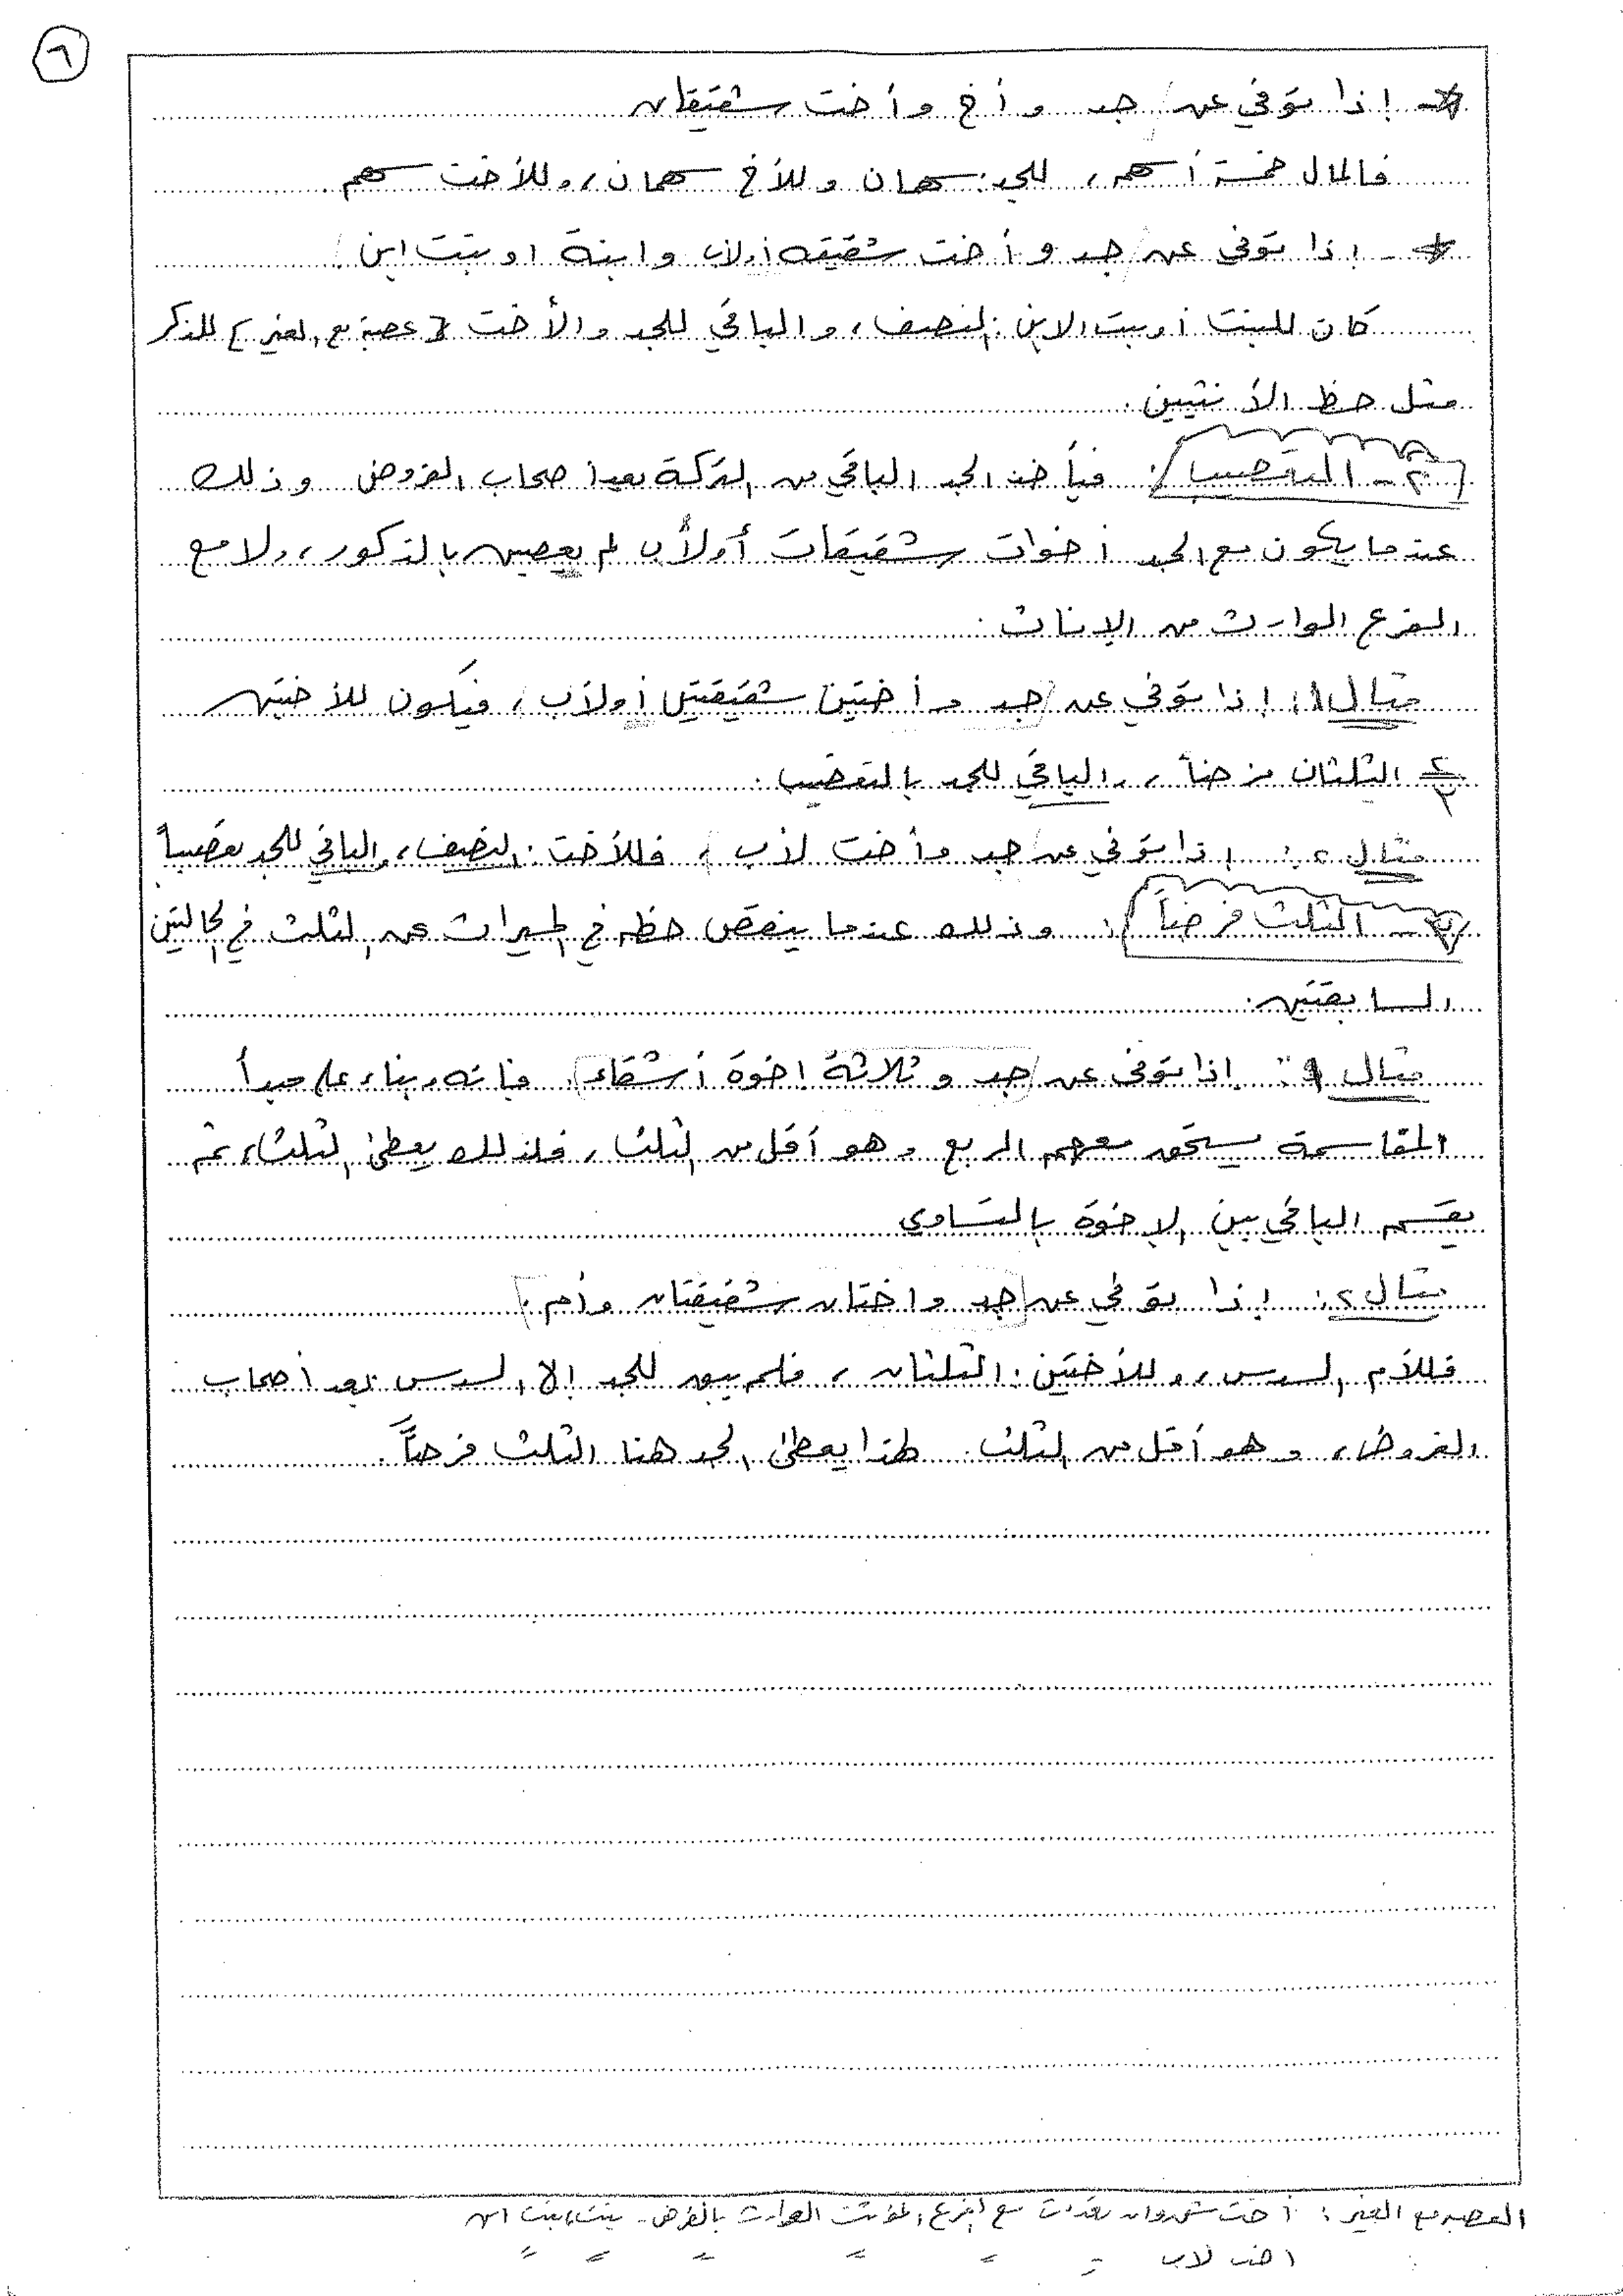 ٦
* - إذا توفي عن جد وأخ وأخت شقيقان
فالمال خمسة أسهم، للجد: سهمان وللأخ سهمان، وللأخت سهم.
* - إذا توفي عن جد وأخت شقيقة أو لأب وابنة او بنت ابن.
كان للبنت أو بنت الابن: النصف، والباقي للجد والأخت [عصبة مع الغير] للذكر
مثل حظ الأنثيين.
٢ - التعصيب: فيأخذ الجد الباقي من التركة بعد أصحاب الفروض وذلك
عندما يكون مع الجد أخوات شقيقات أو لأب لم يعصبن بالذكور، ولا مع
الفرع الوارث من الإناث.
مثال ١: إذا توفي عن جد وأختين شقيقتين أو لأب، فيكون للأختين
٢/٣ الثلثان فرضاً، والباقي للجد بالتعصيب.
مثال ٢: إذا توفي عن جد وأخت لأب، فللأخت: النصف، والباقي للجد تعصيباً
٣ - الثلث فرضاً: وذلك عندما ينقص حظه في الميراث عن الثلث في الحالتين
السابقتين.
مثال ١: إذا توفى عن جد وثلاثة إخوة أشقاء. فإنه بناء على مبدأ
المقاسمة يستحق معهم الربع وهو أقل من الثلث، فلذلك يعطى الثلث، ثم
يقسم الباقي بين الإخوة بالتساوي
مثال ٢: إذا توفي عن جد واختان شقيقتان وأم.
فللأم السدس، وللأختين: الثلثان، فلم يبق للجد إلا السدس بعد أصحاب
الفروض، وهو أقل من الثلث. لهذا يعطى الجد هنا الثلث فرضاً.
العصبة مع الغير: أخت ش وان تعددت مع الفرع المؤنث الوارث بالفرض - بنت، بنت ابن
اخت لأب = = = = = =